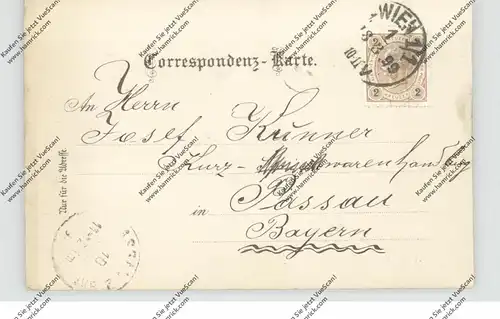 WIEN 1/1
Correspondenz-Karte.
2 2
An Herrn
Josef Kunner
Kurz- warenhandlung
in Passau
Bayern
Nur für die Adresse
Kaufen Sie jetzt VueScan!
www.hamrick.com